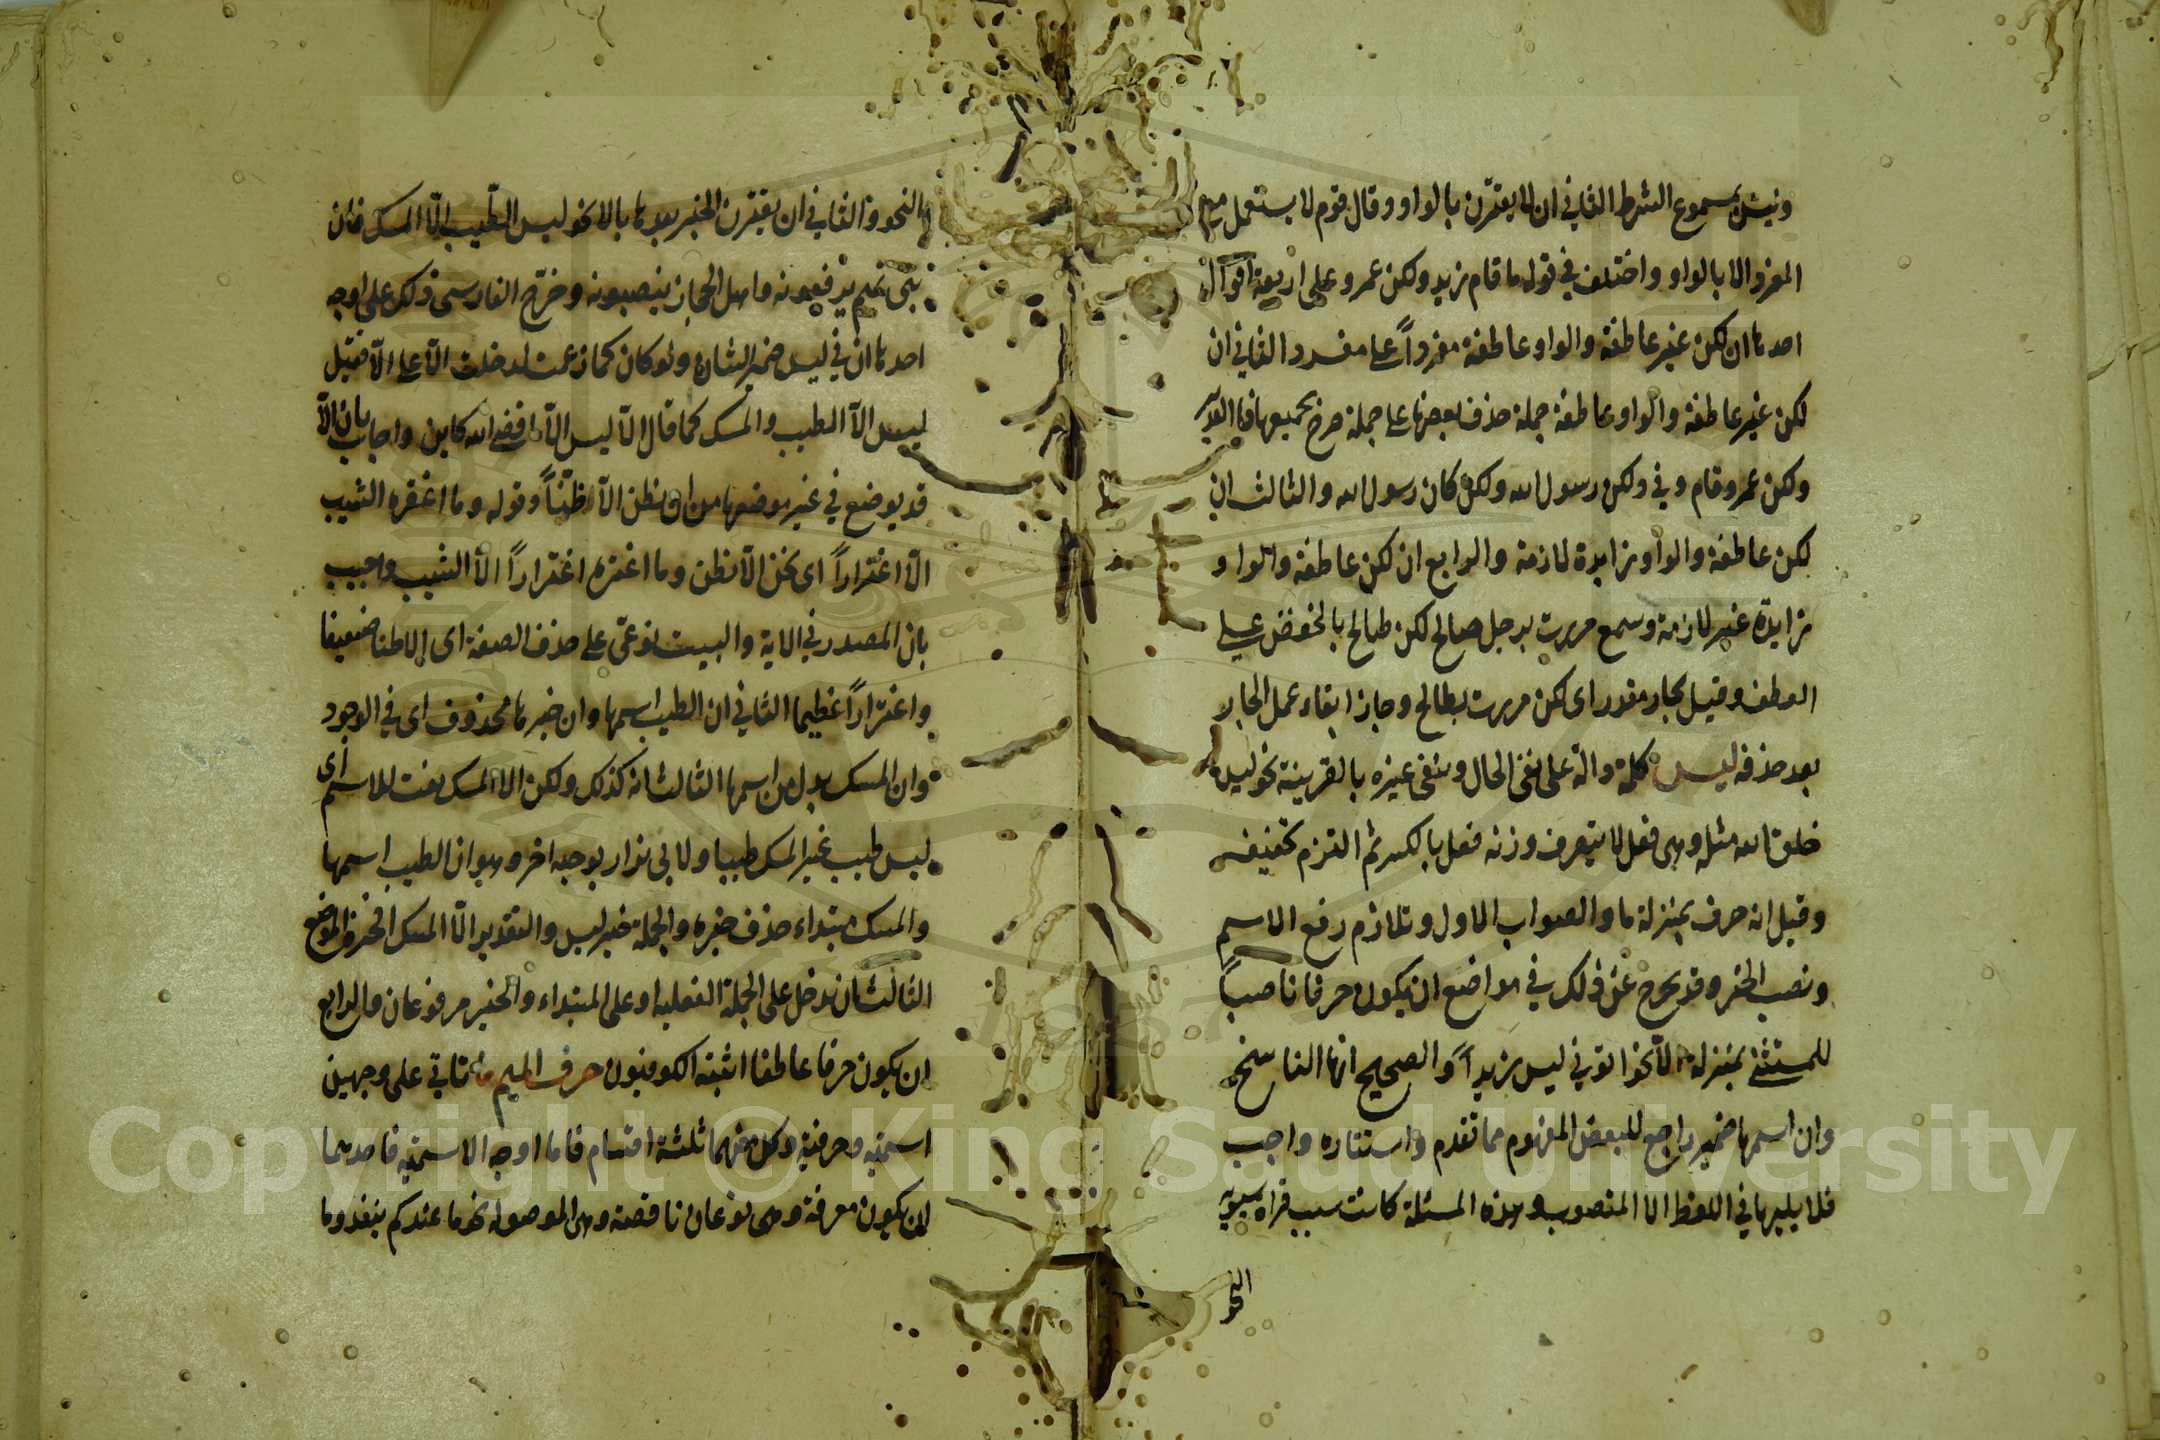 وليس بمسموع الشرط الثاني ان لا يقترن بالواو وقال قوم لا يستعمل مع
المفرد الا بالواو واختلف في قوله ما قام زيد ولكن عمرو على اربعة اقوال
احدها ان لكن غير عاطفة والواو عاطفة مفرداً على مفرد الثاني ان
لكن غير عاطفة والواو عاطفة جملة حذف بعضها على جملة صرح بجميعها فالتقدير
ولكن عمرو قام وفي ولكن رسول الله ولكن كان رسول الله والثالث ان
لكن عاطفة والواو زايدة لازمة والرابع ان لكن عاطفة والواو
زايدة غير لازمة وسمع مررت برجل صالح لكن طالح بالخفض على
العطف وقيل بجار مقدر اي لكن مررت بطالح وجاز ابقاء عمل الجار
بعد حذفه ليس كلمة دالة على نفي الحال وينفى غيره بالقرينة نحو ليس
خلق الله مثله وهى فعل لا يتصرف وزنه فعل بالكسر ثم التزم تخفيفه
وقيل انه حرف بمنزلة ما والصواب الاول وتلازم رفع الاسم
ونصب الخبر وقد يخرج عن ذلك في مواضع ان يكون حرفا ناصباً
للمستثنى بمنزلة الا نحو اتوني ليس زيداً والصحيح انها الناسخ
وان اسمها ضمير راجع للبعض المفهوم مما تقدم واستتاره واجب
فلا يليها في اللفظ الا المنصوب وهذه المسئلة كانت سبب قراة سيبويه
النحو
النحو والثاني ان يقترن الخبر بعدها بالا نحو ليس الطيب الّا المسك فان
بني تميم يرفعونه واهل الحجاز ينصبونه وخرّج الفارسى ذلك على اوجه
احدها ان في ليس ضمير الشان ولو كان كما زعمت لدخلت الّا على الّا فقيل
ليس الّا الطيب والمسك كما قال الّا ليس الّا ما قضى الله كاين واجاب بان الّا
قد يوضع في غير موضعها من ان نظن الّا ظنّاً وقوله وما اغتره الشيب
الّا اغتراراً اى نحن الّا نظن وما اغتره اغتراراً الّا الشيب واجيب
بان المصدر في الاية والبيت نوعيّ على حذف الصفة اى الا ظنا ضعيفا
واغتراراً عظيما الثاني ان الطيب اسمها وان خبرها محذوف اى في الوجود
وان المسك بدل من اسمها الثالث انه كذلك ولكن الا المسك نعت للاسم اى
ليس طيب غير المسك طيبا ولابى نزار بوجه اخر وهو ان الطيب اسمها
والمسك مبتداء حذف خبره والجملة خبر ليس والتقدير الّا المسك افخره الموضع
الثالث ان تدخل على الجملة الفعلية او على المبتداء والخبر مرفوعان والرابع
ان يكون حرفا عاطفا اثبته الكوفيون حرف الميم ما تاتي على وجهين
اسمية وحرفية وكل منهما ثلثة اقسام فاما اوجه الاسمية فاحدهما
ان يكون معرفة وهى نوعان ناقصة وهى الموصولة نحو ما عندكم ينفد وما